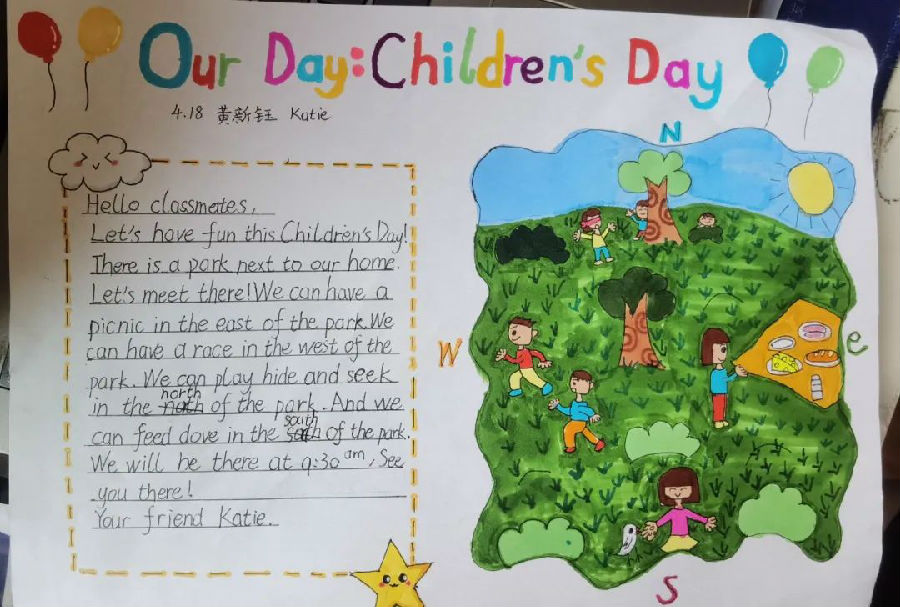 Our Day: Children's Day
4.18 黄新钰 Katie
N
Hello classmates,
Let's have fun this Children's Day!
There is a park next to our home.
Let's meet there! We can have a
picnic in the east of the park. We
can have a race in the west of the
park. We can play hide and seek
in the north of the park. And we
can feed dove in the south of the park.
We will be there at 9:30 am. See
you there!
Your friend Katie.
W
e
S